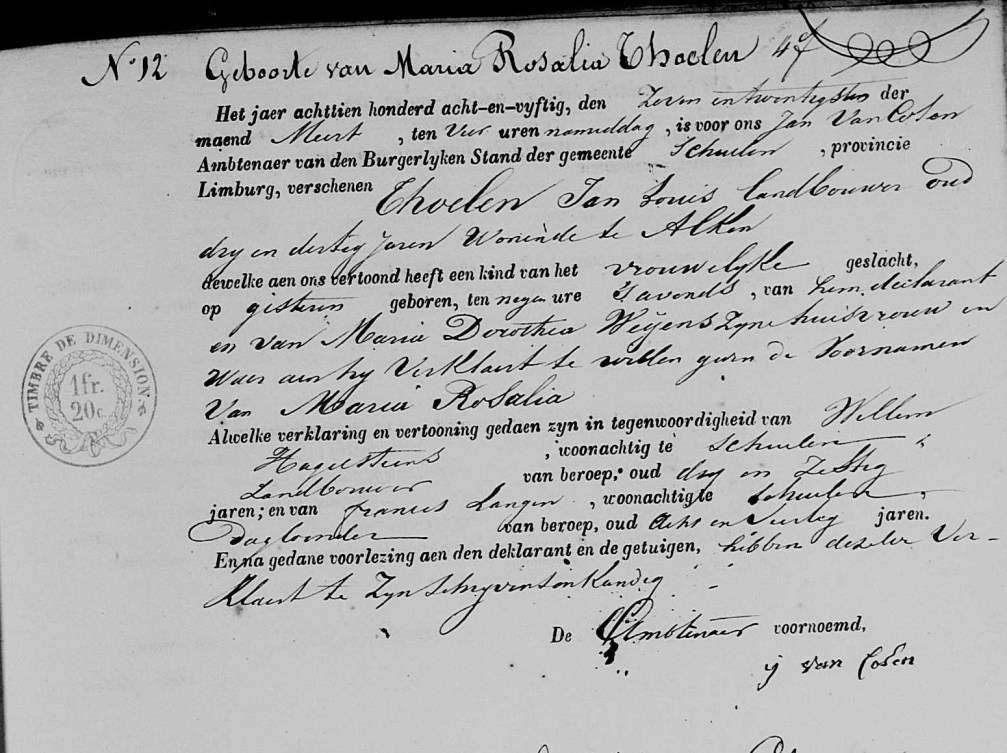 N° 12 Geboorte van Maria Rosalia Thoelen
Het jaer achttien honderd acht-en-vyftig, den Zeven en twentigsten der
maend Meert, ten Vier uren namiddag, is voor ons Jan Van Cosen
Ambtenaer van den Burgerlyken Stand der gemeente Schuelen, provincie
Limburg, verschenen Thoelen Jan Louis landbouwer oud
dry en dertig jaren Wonende te Alken
dewelke aen ons vertoond heeft een kind van het vrouwelyke geslacht,
op gisteren geboren, ten negen ure 's avonds, van hem declarant
en van Maria Dorothea Weijens Zyne huisvrouw en
Waer aen hy Verklaert te willen geven de Voornamen
Van Maria Rosalia
Alwelke verklaring en vertooning gedaen zyn in tegenwoordigheid van Willem
Hagelsteens, woonachtig te Schuelen
Landbouwer van beroep, oud dry en Zestig
jaren; en van Francis Langen, woonachtig te Schuelen,
Daglooner van beroep, oud Acht en Veertig jaren.
En na gedane voorlezing aen den deklarant en de getuigen, hebben dezelve Ver-
Klaert te Zyn schryvensonkundig
De Ambtenaer voornoemd,
J Van Cosen
TIMBRE DE DIMENSION
1 fr.
20 c.